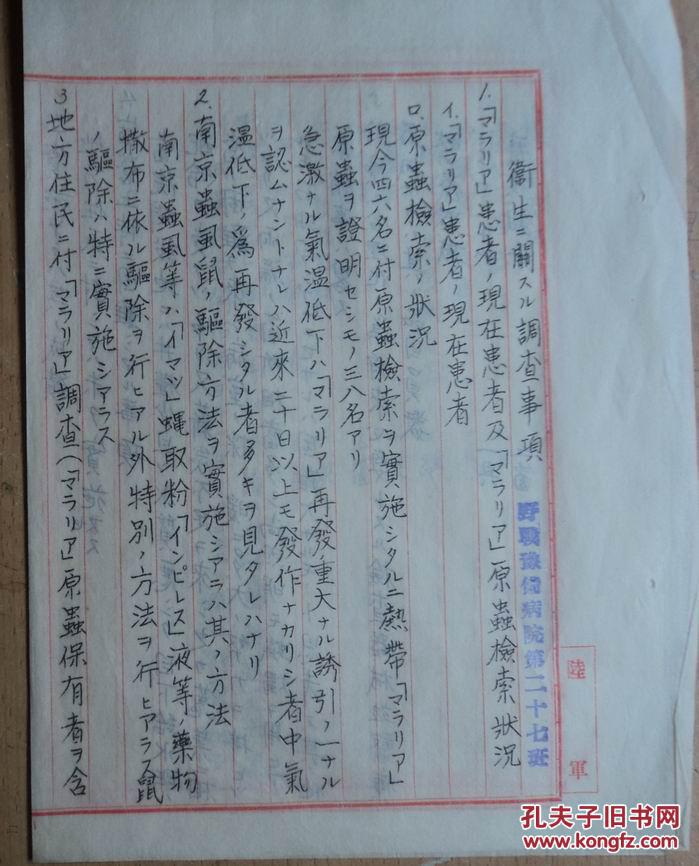 衞生ニ關スル調査事項
野戰豫備病院第二十七班
陸軍
1.「マラリア」患者ノ現在患者及「マラリア」原蟲檢索ノ狀况
イ.「マラリア」患者ノ現在患者
ロ.原蟲檢索ノ狀况
現今四六名ニ付原蟲檢索ヲ實施シタルニ熱帶「マラリア」
原蟲ヲ證明セシモノ三八名アリ
急激ナル氣温低下ハ「マラリア」再發ノ重大ナル誘引ノ一ナル
ヲ認ムナントナレハ近來二十日以上モ發作ナカリシ者中氣
温低下ノ爲再發シタル者多キヲ見タレハナリ
2.南京蟲虱鼠ノ驅除方法ヲ實施シアラハ其ノ方法
南京蟲虱等ハ「イマツ」蝿取粉「インピレス」液等ノ藥物
撒布ニ依ル驅除ヲ行ヒアル外特別ノ方法ヲ行ヒアラス鼠
ノ驅除ハ特ニ實施シアラス
3.地方住民ニ付「マラリア」調査(「マラリア」原蟲保有者ヲ含
孔夫子旧书网
www.kongfz.com